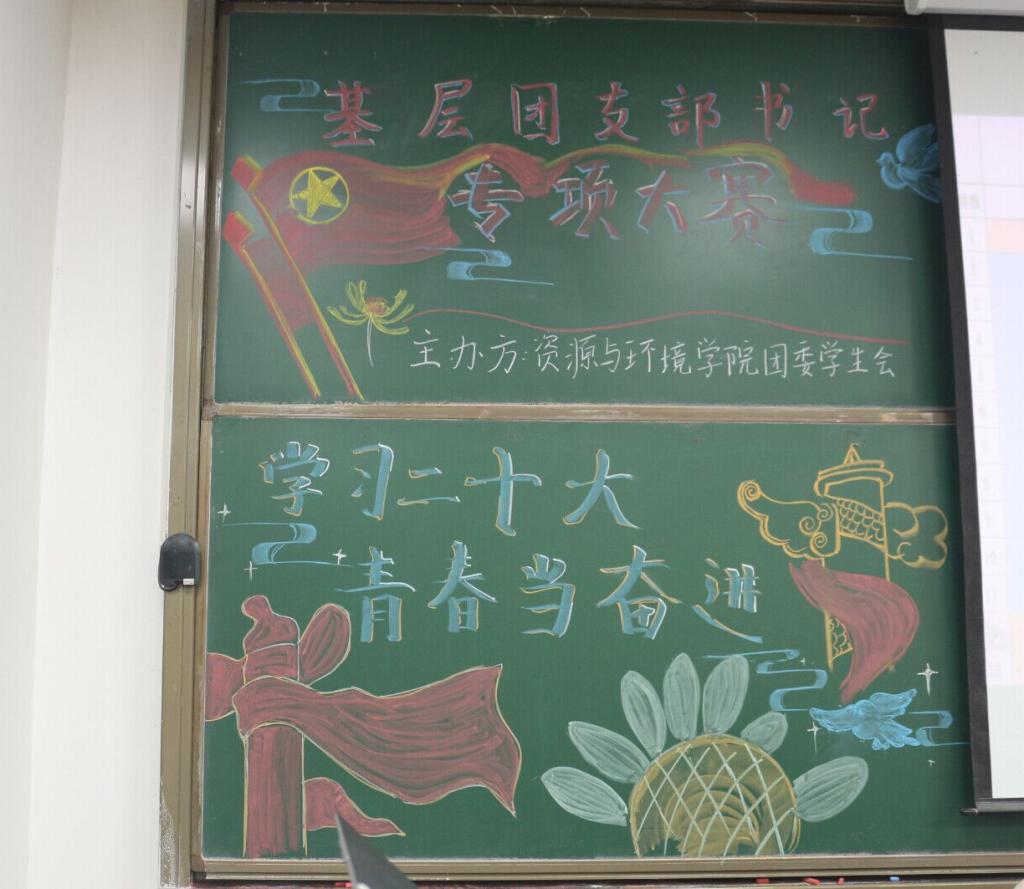 基层团支部书记
专项大赛
主办方:资源与环境学院团委学生会
学习二十大
青春当奋进